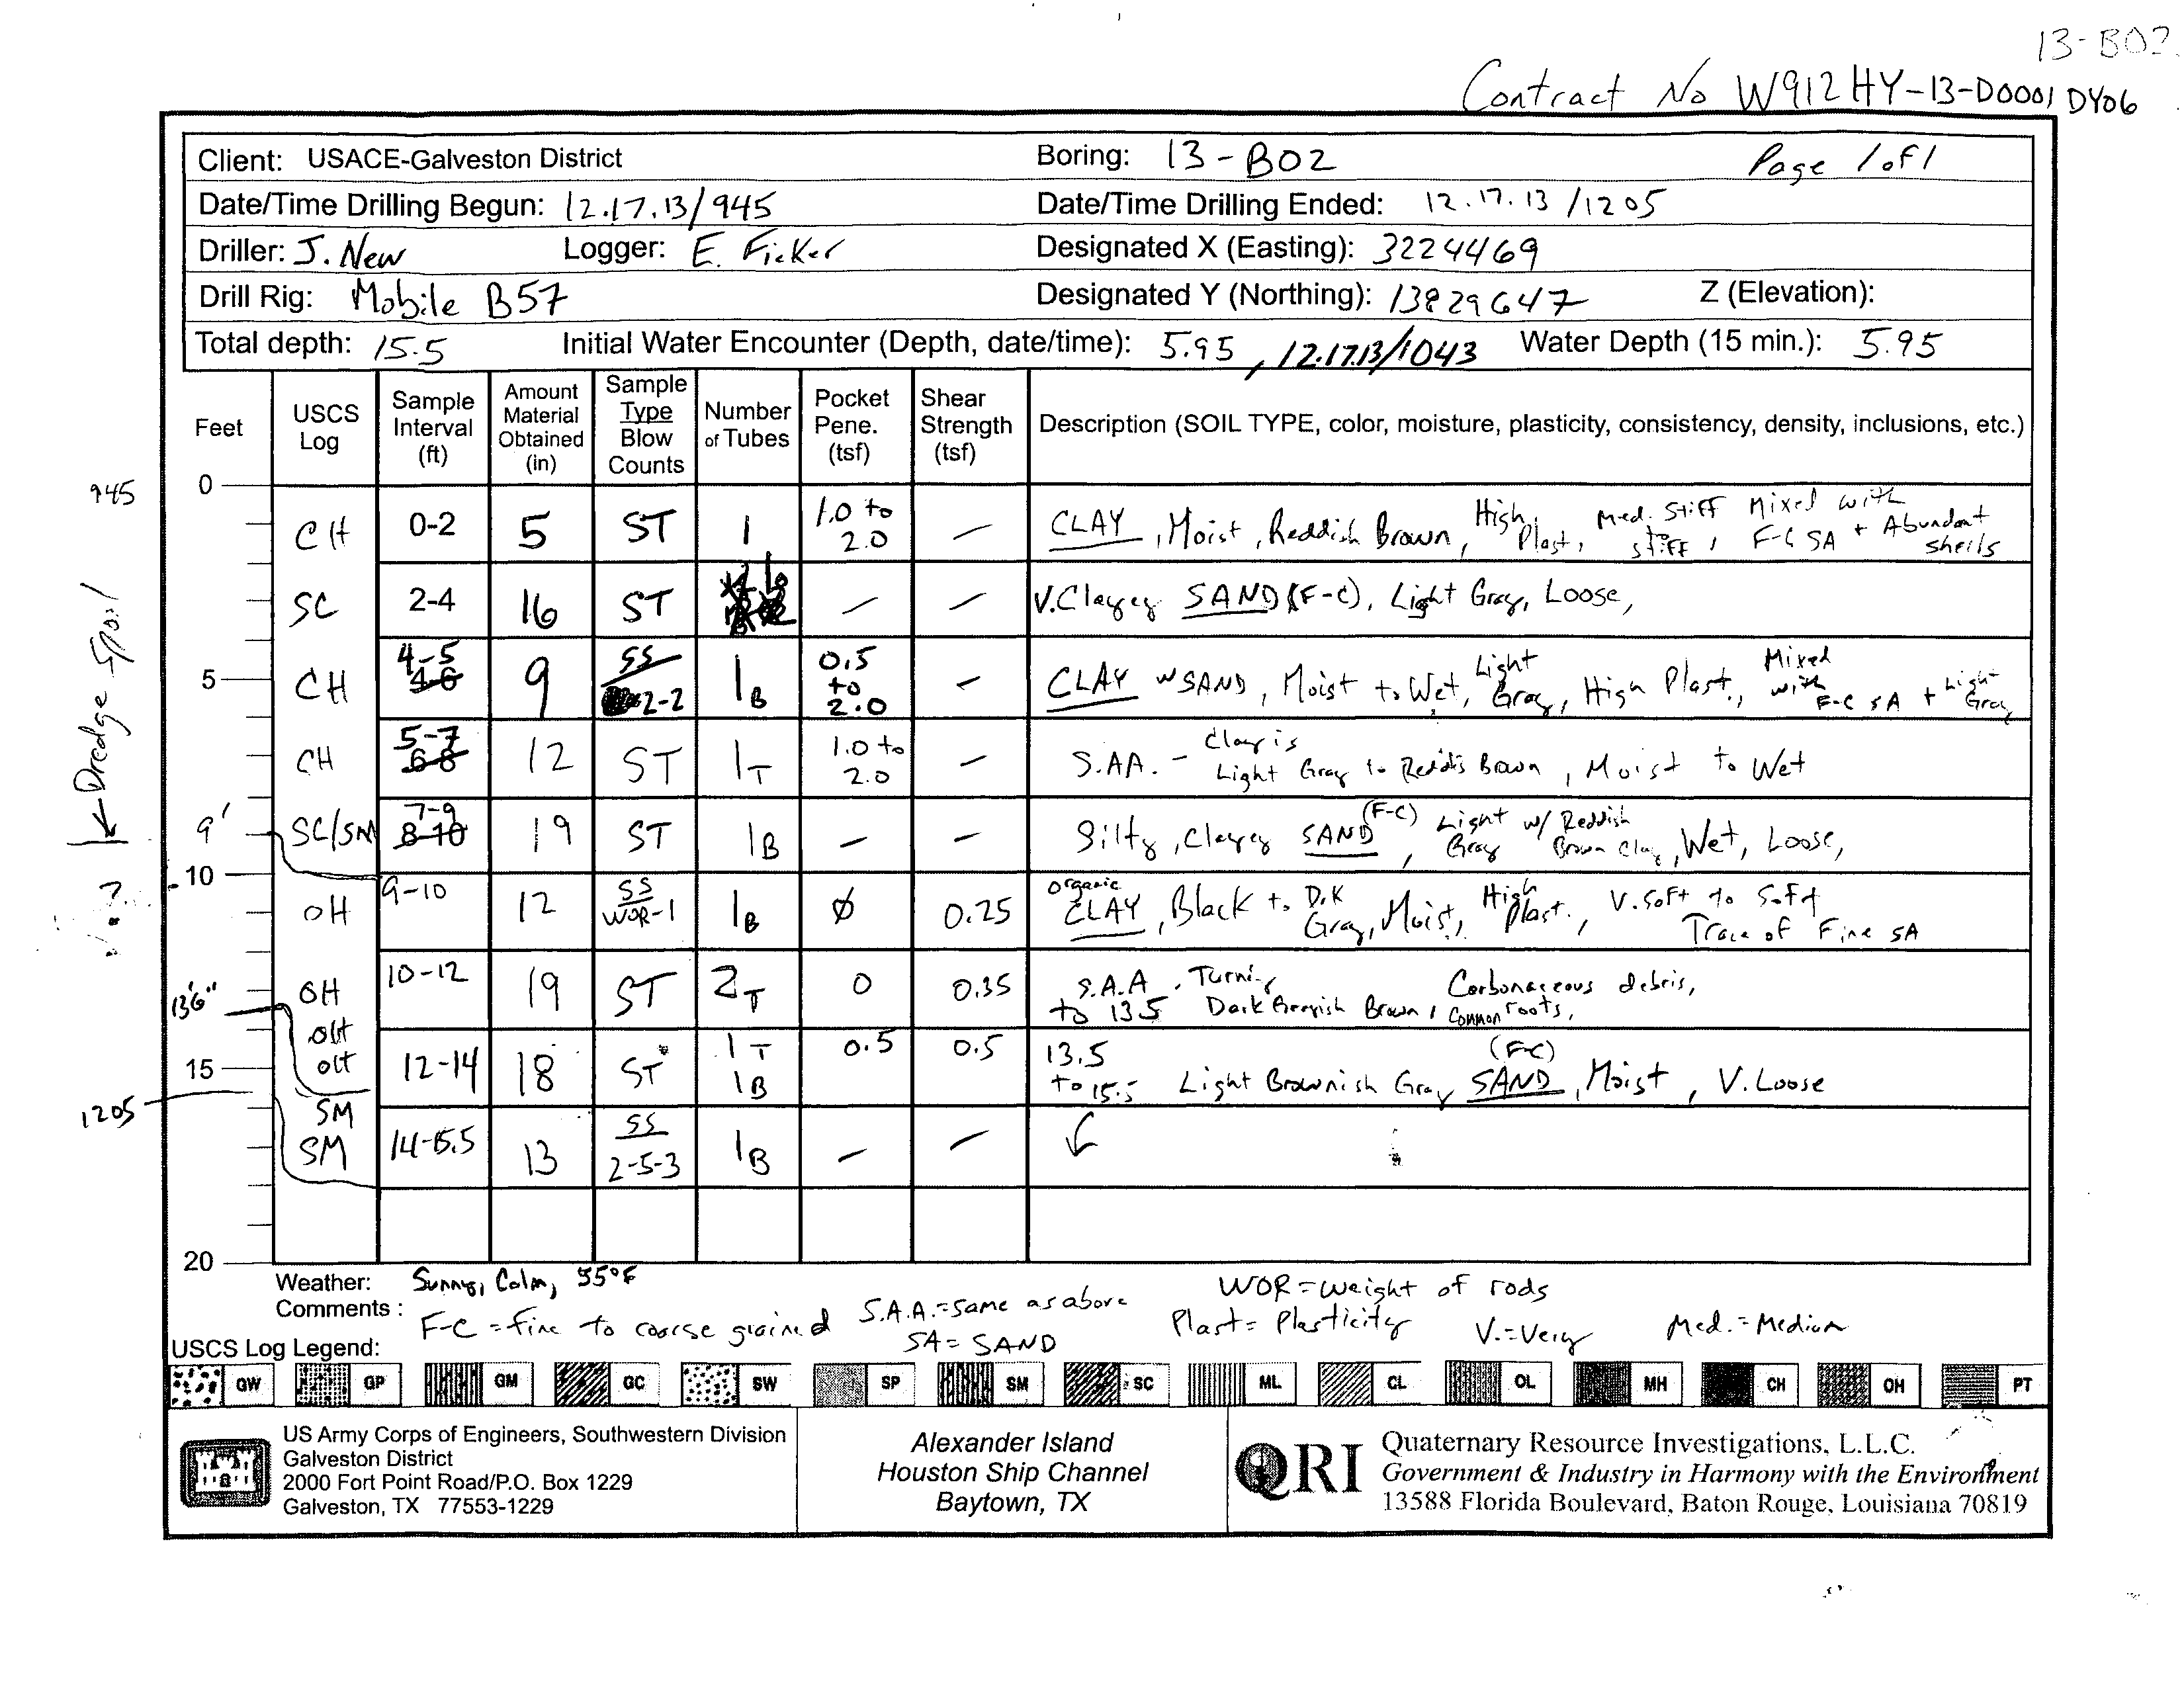 13-B02
Contract No W912HY-13-D0001 DY06
Client: USACE-Galveston District Boring: 13-B02 Page 1 of 1
Date/Time Drilling Begun: 12.17.13/945 Date/Time Drilling Ended: 12.17.13/1205
Driller: J. New Logger: E. Ficker Designated X (Easting): 3224469
Drill Rig: Mobile B57 Designated Y (Northing): 13829647 Z (Elevation):
Total depth: 15.5 Initial Water Encounter (Depth, date/time): 5.95, 12.17.13/1043 Water Depth (15 min.): 5.95
Feet USCS Log Sample Interval (ft) Amount Material Obtained (in) Sample Type Blow Counts Number of Tubes Pocket Pene. (tsf) Shear Strength (tsf) Description (SOIL TYPE, color, moisture, plasticity, consistency, density, inclusions, etc.)
945 0
CH 0-2 5 ST 1 1.0 to 2.0 — CLAY, Moist, Reddish Brown, High Plast, Med. Stiff to stiff, Mixed with F-C SA + Abundant shells
SC 2-4 16 ST — — V. Clayey SAND (F-C), Light Gray, Loose,
← Dredge Spoil
5 CH 4-5 4-6 9 SS 2-2 1B 0.5 to 2.0 — CLAY w SAND, Moist to Wet, Light Gray, High Plast., Mixed with F-C SA + Light Gray
CH 5-7 6-8 12 ST 1T 1.0 to 2.0 — S.AA. - Clay is Light Gray to Reddis Brown, Moist to Wet
9' SC/SM 7-9 8-10 19 ST 1B — — Silty, Clayey SAND (F-C), Light Gray w/ Reddish Brown Clay, Wet, Loose,
10
OH 9-10 12 SS WOR-1 1B Ø 0.25 Organic CLAY, Black to D.K Gray, Moist, High Plast., V. Soft to Soft Trace of Fine SA
13'6" OH 10-12 19 ST 2T 0 0.35 S.A.A. Turning Carbonaceous debris,
to 13.5 Dark Grayish Brown, Common roots,
OH
15 OH 12-14 18 ST 1T 1B 0.5 0.5 13.5 to 15.5 Light Brownish Gray SAND (F-C), Moist, V. Loose
1205 SM
SM 14-15.5 13 SS 2-5-3 1B — —
20
Weather: Sunny, Calm, 55°F WOR = weight of rods
Comments: F-C = fine to coarse grained S.A.A. = same as above Plast = Plasticity V. = Very Med. = Medium
SA = SAND
USCS Log Legend:
GW GP GM GC SW SP SM SC ML CL OL MH CH OH PT
US Army Corps of Engineers, Southwestern Division
Galveston District
2000 Fort Point Road/P.O. Box 1229
Galveston, TX 77553-1229
Alexander Island
Houston Ship Channel
Baytown, TX
QRI
Quaternary Resource Investigations, L.L.C.
Government & Industry in Harmony with the Environment
13588 Florida Boulevard, Baton Rouge, Louisiana 70819